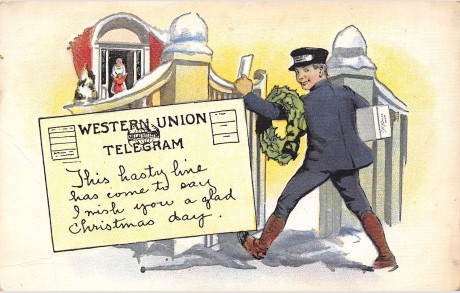 WESTERN UNION
TELEGRAM
This hasty line
has come to say
I wish you a glad
Christmas day.